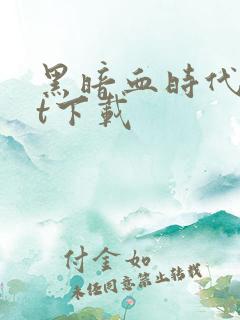 黑暗血時代
t下載
付金如
未经同意禁止转载